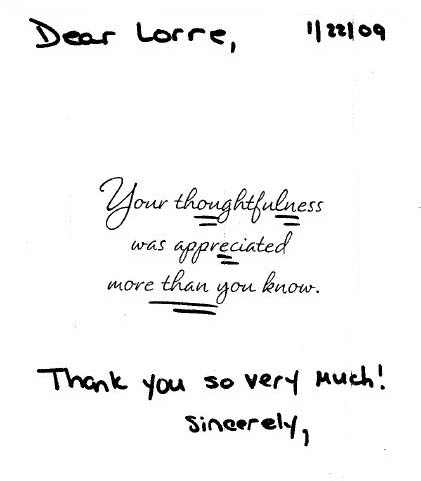 Dear Lorre, 1/22/09
Your thoughtfulness
was appreciated
more than you know.
Thank you so very much!
Sincerely,